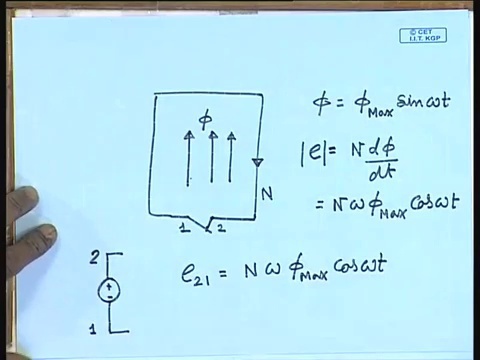 © CET
I.I.T. KGP
ϕ = ϕMax sin ωt
ϕ
|e| = N dϕ/dt
N
= N ω ϕMax cos ωt
1 2
2
e21 = N ω ϕMax cos ωt
+
-
1